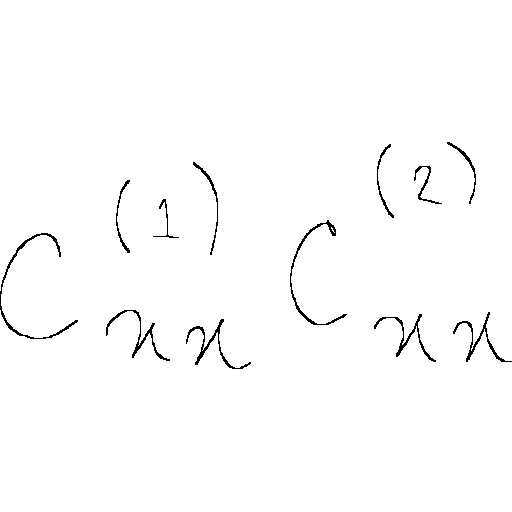 C_{xx}^{(1)} C_{xx}^{(2)}